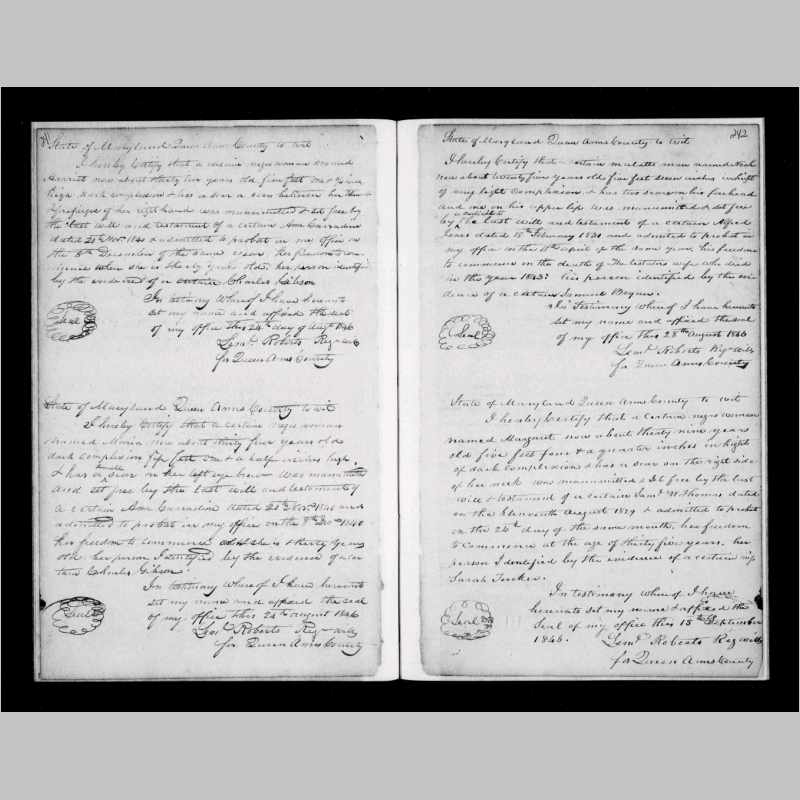 State of Maryland Queen Anns County to wit
I hereby Certify that a certain negro woman named
Harriet now about thirty two years old five feet one &
high dark complexion & has a scar between her thum &
forefinger of her right hand was manumitted & set free by
the last will and testament of a certain Ann Carradine
dated 20th Nov. 1840 & admitted to probat in my office on
the 8th December of the same year her freedom to
when she is thirty years old, her person identified
by the evidence of a certain Charles Gibson
In testimony Whereof I have hereunto
Seal
set my name and affixed the seal
of my office this 24th day of August 1846
Leml. Roberts Reg Wills
for Queen Anns County
State of Maryland Queen Anns County to wit
I hereby Certify that a certain negro woman
named Maria now about thirty five years old
dark complexion five feet one & a half inches high
& has a small scar on her left eye brow was manumitted
and set free by the last will and testament of
a certain Ann Carradine dated 20th Nov. 1840 and
admitted to probat in my office on the 8th Dec 1840
her freedom to commence when she is thirty years
old her person Identified by the evidence of a cer
tain Charles Gibson
In testimony Whereof I have hereunto
Seal
set my name and affixed the seal
of my office this 24th August 1846
Leml. Roberts Reg Wills
for Queen Anns County
242
State of Maryland Queen Anns County to wit
I hereby Certify that a certain mulatto man named Noah
now about twenty five years old five feet seven inches in hight
of very light Complexion & has two scars on his forehead
and one on his upper lip was manumitted & set free
by the last will and testament of a certain Alfred
Jones dated 15th February 1821 and admitted to probat in
my office on the 11th April of the same year, his freedom
to commence on the death of the testators wife who died
in the year 1843: his person identified by the evi
dence of a certain Samuel
In testimony Whereof I have hereunto
Seal
set my name and affixed the seal
of my office this 28th August 1846
Leml. Roberts Reg Wills
for Queen Anns County
State of Maryland Queen Anns County to wit
I hereby Certify that a certain negro woman
named Margaret now about thirty nine years
old five feet four & a quarter inches in hight
of dark Complexion & has a scar on the right side
of her neck was manumitted & set free by the last
will & testament of a certain Saml. W Thomas dated
on the eleventh August 1829 & admitted to probat
on the 26th day of the same month, her freedom
to Commence at the age of thirty five years, her
person Identified by the evidence of a certain
Sarah Tucker.
In testimony whereof I have
Seal
hereunto set my name & affixed the
Seal of my office this 15th September
1846. Leml. Roberts Reg Wills
for Queen Anns County